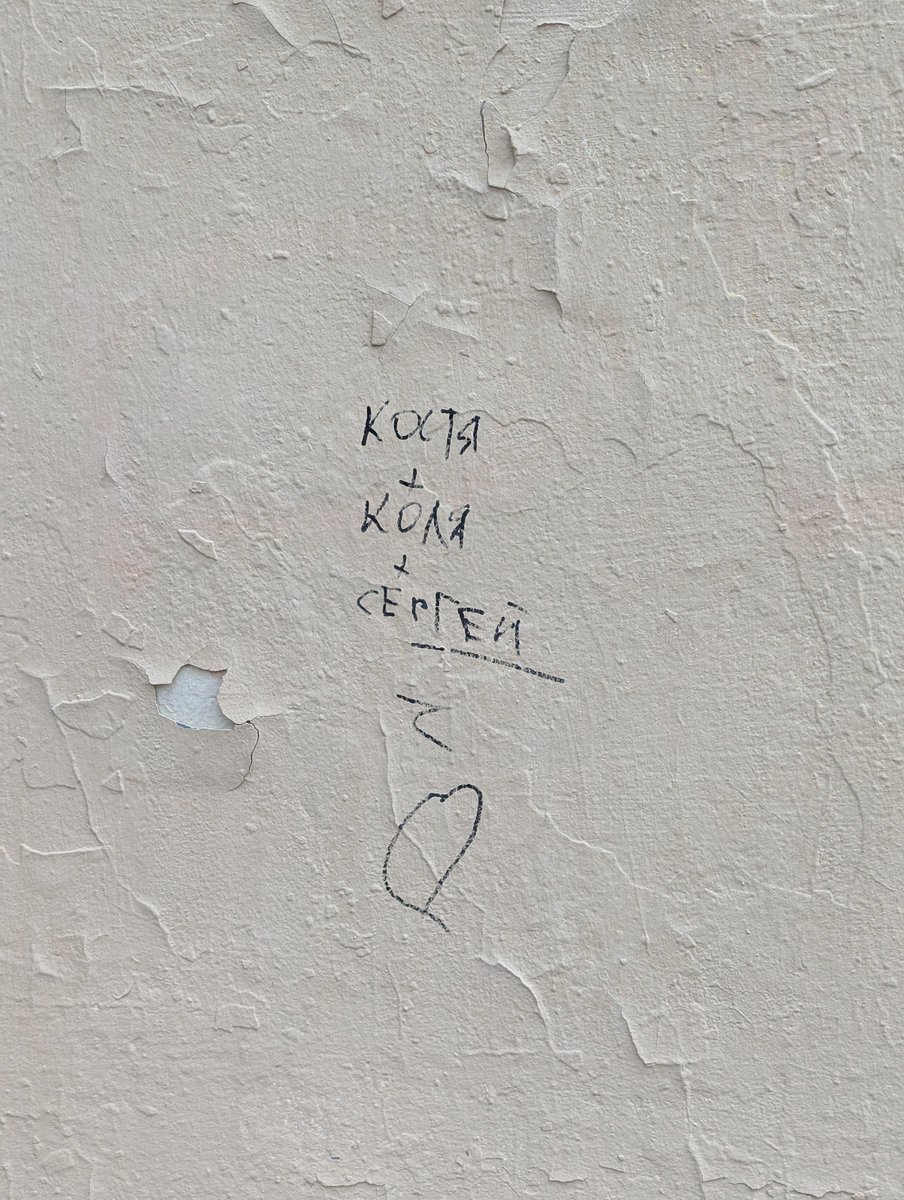 КОСТЯ
+
КОЛЯ
+
СЕРГЕЙ
=